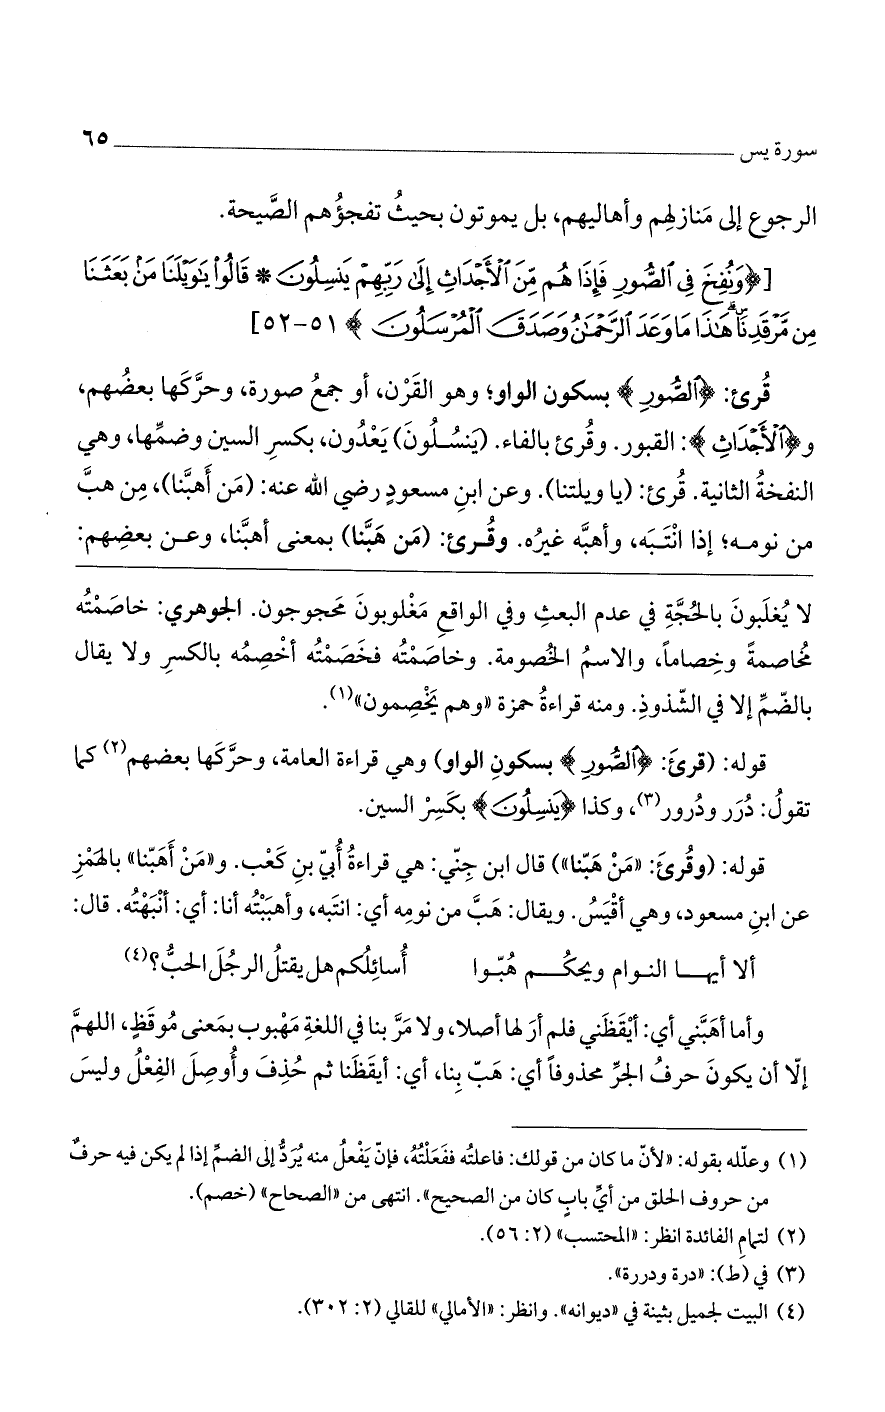 سورة يس ـــــــ ٦٥
الرجوع إلى مَنازلِهم وأهاليهم، بل يموتون بحيثُ تفجؤُهم الصَّيحة.
[﴿وَنُفِخَ فِي ٱلصُّورِ فَإِذَا هُم مِّنَ ٱلْأَجْدَاثِ إِلَىٰ رَبِّهِمْ يَنسِلُونَ * قَالُوا۟ يَٰوَيْلَنَا مَنۢ بَعَثَنَا
مِن مَّرْقَدِنَا ۜ ۗ هَٰذَا مَا وَعَدَ ٱلرَّحْمَٰنُ وَصَدَقَ ٱلْمُرْسَلُونَ ﴾ ٥١-٥٢]
قُرئ: ﴿ٱلصُّورِ﴾ بسكون الواو؛ وهو القَرْن، أو جمعُ صورة، وحرَّكها بعضُهم،
و﴿ٱلْأَجْدَاثِ﴾: القبور. وقُرئ بالفاء. (يَنسُـلُونَ) يَعْدُون، بكسرِ السين وضمِّها، وهي
النفخةُ الثانية. قُرئ: (يا ويلتنا). وعن ابنِ مسعودٍ رضي الله عنه: (مَن أَهبَّنا)، مِن هبَّ
من نومـه؛ إذا انْتَبَه، وأهبَّه غيرُه. وقُـرئ: (مَن هَبَّنا) بمعنى أهبَّنا، وعـن بعضِهم:
لا يُغلَبونَ بالحُجَّةِ في عدم البعثِ وفي الواقعِ مَغْلوبونَ محَجوجون. الجوهري: خاصَمْتُه
مُخاصمةً وخِصاماً، والاسمُ الخُصومة. وخاصَمْتُه فخَصَمْتُه أخْصِمُه بالكسرِ ولا يقال
بالضّمِّ إلا في الشّذوذِ. ومنه قراءةُ حمزة «وهم يَخْصِمون»(١).
قوله: (قرئَ: ﴿ٱلصُّورِ﴾ بسكونِ الواو) وهي قراءة العامة، وحرَّكَها بعضهم(٢) كما
تقولُ: دُرَر ودُرور(٣)، وكذا ﴿يَنسِلُونَ﴾ بكَسِرْ السين.
قوله: (وقُرئَ: «مَنْ هَبّنا») قال ابن جِنّي: هي قراءةُ أُبيّ بنِ كَعْب. و«مَنْ أَهبّنا» بالهَمْزِ
عن ابنِ مسعود، وهي أقْيَسُ. ويقال: هَبَّ من نومِه أي: انتَبه، وأهبَبْتُه أنا: أي: أنْبَهْتُه. قال:
ألا أيهـا النـوام ويحكُـم هُبّـوا أُسائِلُكم هل يقتلُ الرجُلَ الحبُّ؟(٤)
وأما أهَبَّني أي: أيْقَظَني فلم أرَ لها أصلا، ولا مَرَّ بنا في اللغةِ مَهْبوب بمَعنى مُوقَظٍ، اللهمَّ
إلّا أن يكونَ حرفُ الجرِّ محذوفاً أي: هَبّ بِنا، أي: أيقَظَنا ثم حُذِفَ وأُوصِلَ الفِعْلُ وليسَ
(١) وعلّله بقوله: «لأنّ ما كان من قولك: فاعلتُه ففَعَلْتُهُ، فإنّ يَفْعلُ منه يُرَدُّ إلى الضمِّ إذا لم يكن فيه حرفٌ
من حروف الحلق من أيِّ بابٍ كان من الصحيح». انتهى من «الصحاح» (خصم).
(٢) لتمامِ الفائدة انظر: «المحتسب» (٢: ٥٦).
(٣) في (ط): «درة ودررة».
(٤) البيت لجميل بثينة في «ديوانه». وانظر: «الأمالي» للقالي (٢: ٣٠٢).